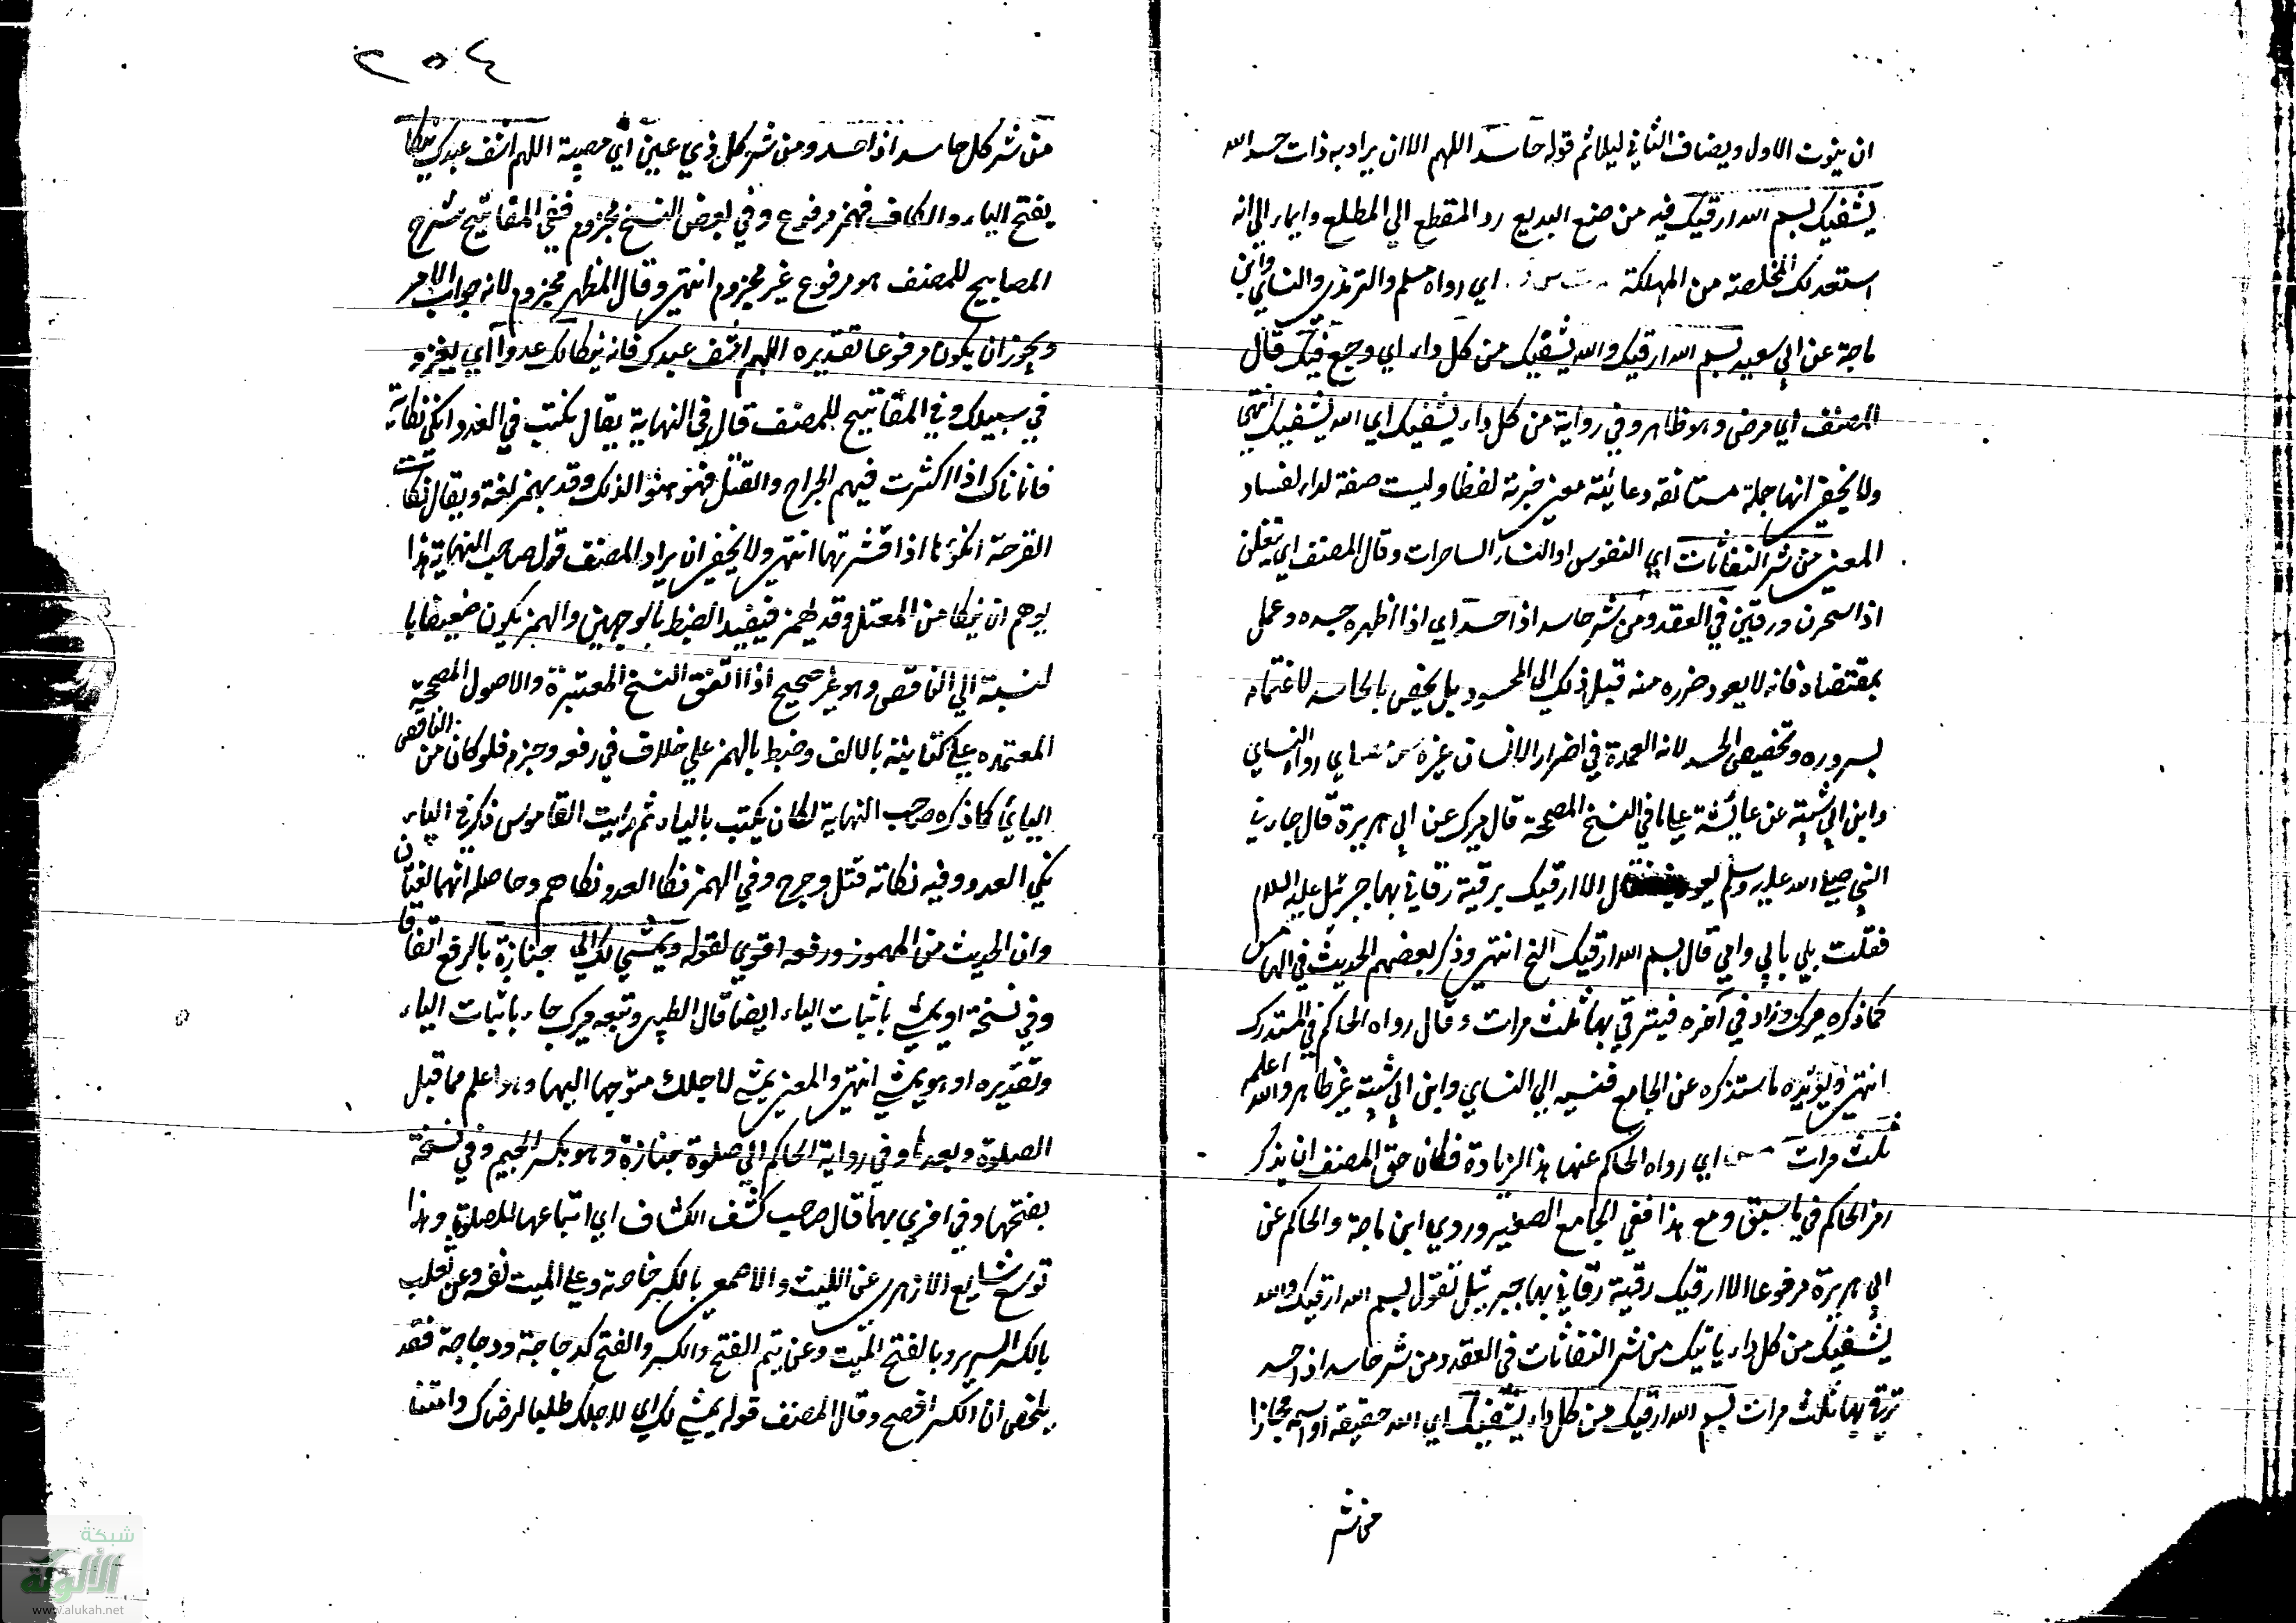 ان ينون الاول ويضاف الثاني ليلائم قوله حاسد اللهم الا ان يراد به ذات حسد الله
يشفيك بسم الله ارقيك فيه من صنع البديع رد المقطع الي المطلع وايماء الي انه
استعد تلك المخلصة من المهلكة اي رواه مسلم والترمذي والنسائي وابن
ماجة عن ابي سعيد بسم الله ارقيك والله يشفيك من كل داء اي وجع فيك قال
المصنف اي مرض وهو ظاهر وفي رواية من كل داء يشفيك اي الله يشفيك انتهى
ولا يخفى انها جملة مستانفه دعائية معنى خبرية لفظا وليست صفة لداء لفساد
المعنى من شر النفاثات اي النفوس او النساء الساحرات وقال المصنف اي تفلن
اذا سحرن ورقين في العقد ومن شر حاسد اذا حسد اي اذا اظهر حسده وعمل
بمقتضاه فانه لا يعود ضرره منه قبل ذلك الى المحسود بل يخص بالحاسد لاغتمامه
بسروره وتخصيص الحسد لانه العمدة في اضرار الانسان غيره اي رواه النساي
وابن ابي شيبة عن عايشة علي ما في النسخ المصححة قال ميرك عن ابي هريرة قال جاءني
النبي صلى الله عليه وسلم يعودني فقال الا ارقيك برقية رقاني بها جبرئيل عليه السلام
فقلت بلي بابي وامي قال بسم الله ارقيك الخ انتهى وذكر بعضهم الحديث في الهامش
كما ذكره ميرك وزاد في آخره فيترقي بها ثلث مرات وقال رواه الحاكم في المستدرك
انتهى ويؤيده ما سنذكره عن الجامع فنسبه الي النساي وابن ابي شيبة غير ظاهر والله اعلم
ثلث مرات اي رواه الحاكم عنهما هذا الزيادة فكان حق المصنف ان يذكر
رمز الحاكم في ما سبق ومع هذا ففي الجامع الصغير وروي ابن ماجة والحاكم عن
ابي هريرة مرفوعا الا ارقيك رقية رقاني بها جبرئيل تقول بسم الله ارقيك والله
يشفيك من كل داء ياتيك من شر النفاثات في العقد ومن شر حاسد اذا حسد
ترقي بها ثلث مرات بسم الله ارقيك من كل داء يشفيك اي الله حقيقه او اسمه مجازا
من شر
٢٥٤
من شر كل حاسد اذا حسد ومن شر كل ذي عين اي مصيبة اللهم اشف عبدك ينكا
بفتح الياء والكاف فهمز مرفوع وفي بعض النسخ مجزوم ففي المفاتيح شرح
المصابيح للمصنف هو مرفوع غير مجزوم انتهى وقال المظهر مجزوم لانه جواب الامر
ويجوز ان يكون مرفوعا تقديره اللهم اشف عبدك فانه ينكا لك عدوا اي يغزو
في سبيلك وفي المفاتيح للمصنف قال في النهاية يقال نكيت في العدو انكي نكاية
فانا ناك اذا اكثرت فيهم الجراح والقتل فوهنوا لذلك وقد يهمز لغة ويقال نكات
القرحة انكؤها اذا قشرتها انتهى ولا يخفى ان يراد المصنف قول صاحب النهاية هذا
يوهم ان ينكا من المعتل وقد يهمز فيفيد الضبط بالوجهين والهمز يكون ضعيفا با
لنسبة الي الناقص وهو غير صحيح اذا اتفق النسخ المعتبرة والاصول المصححة
المعتمده علي كتابته بالالف وضبط بالهمز علي خلاف في رفعه وجزمه فلو كان من الناقص
اليايي كما ذكره صاحب النهاية لكان يكتب بالياء ثم رايت القاموس ذكر في الياء
نكي العدو وفيه نكاية قتل وجرح وفي الهمز نكا العدو نكاهم وحاصله انهما لغتان
وان الحديث من المهموز ورفعه اقوي لقوله ويمشي لك الى جنازة بالرفع اتفاقا
وفي نسخة او يمشي باثبات الياء ايضا قال الطيبي وتبعه ميرك جاء باثبات الياء
وتقديره او هو يمشي انتهى والمعنى يمشي لاجلك متوجها اليها وهو اعلم مما قبل
الصلوة وبعدها وفي رواية الحاكم الي صلوة جنازة وهو بكسر الجيم وفي نسخة
بفتحها وفي اخرى بهما قال صاحب كشف الكشاف اي اتباعها للصلوة وهذا
توسع شايع الازهري عن الليث والاصمعي بالكسر خاصة وعلي الميت نفسه وعن ثعلب
بالكسر السرير وبالفتح الميت وعن يتم الفتح والكسر والفتح كدجاجة ودجاجة فقد
يلخص ان الكسر افصح وقال المصنف قوله يمشي لك اي لاجلك طلبا لرضاك وامتثا
شبكة
الألوكة
www.alukah.net